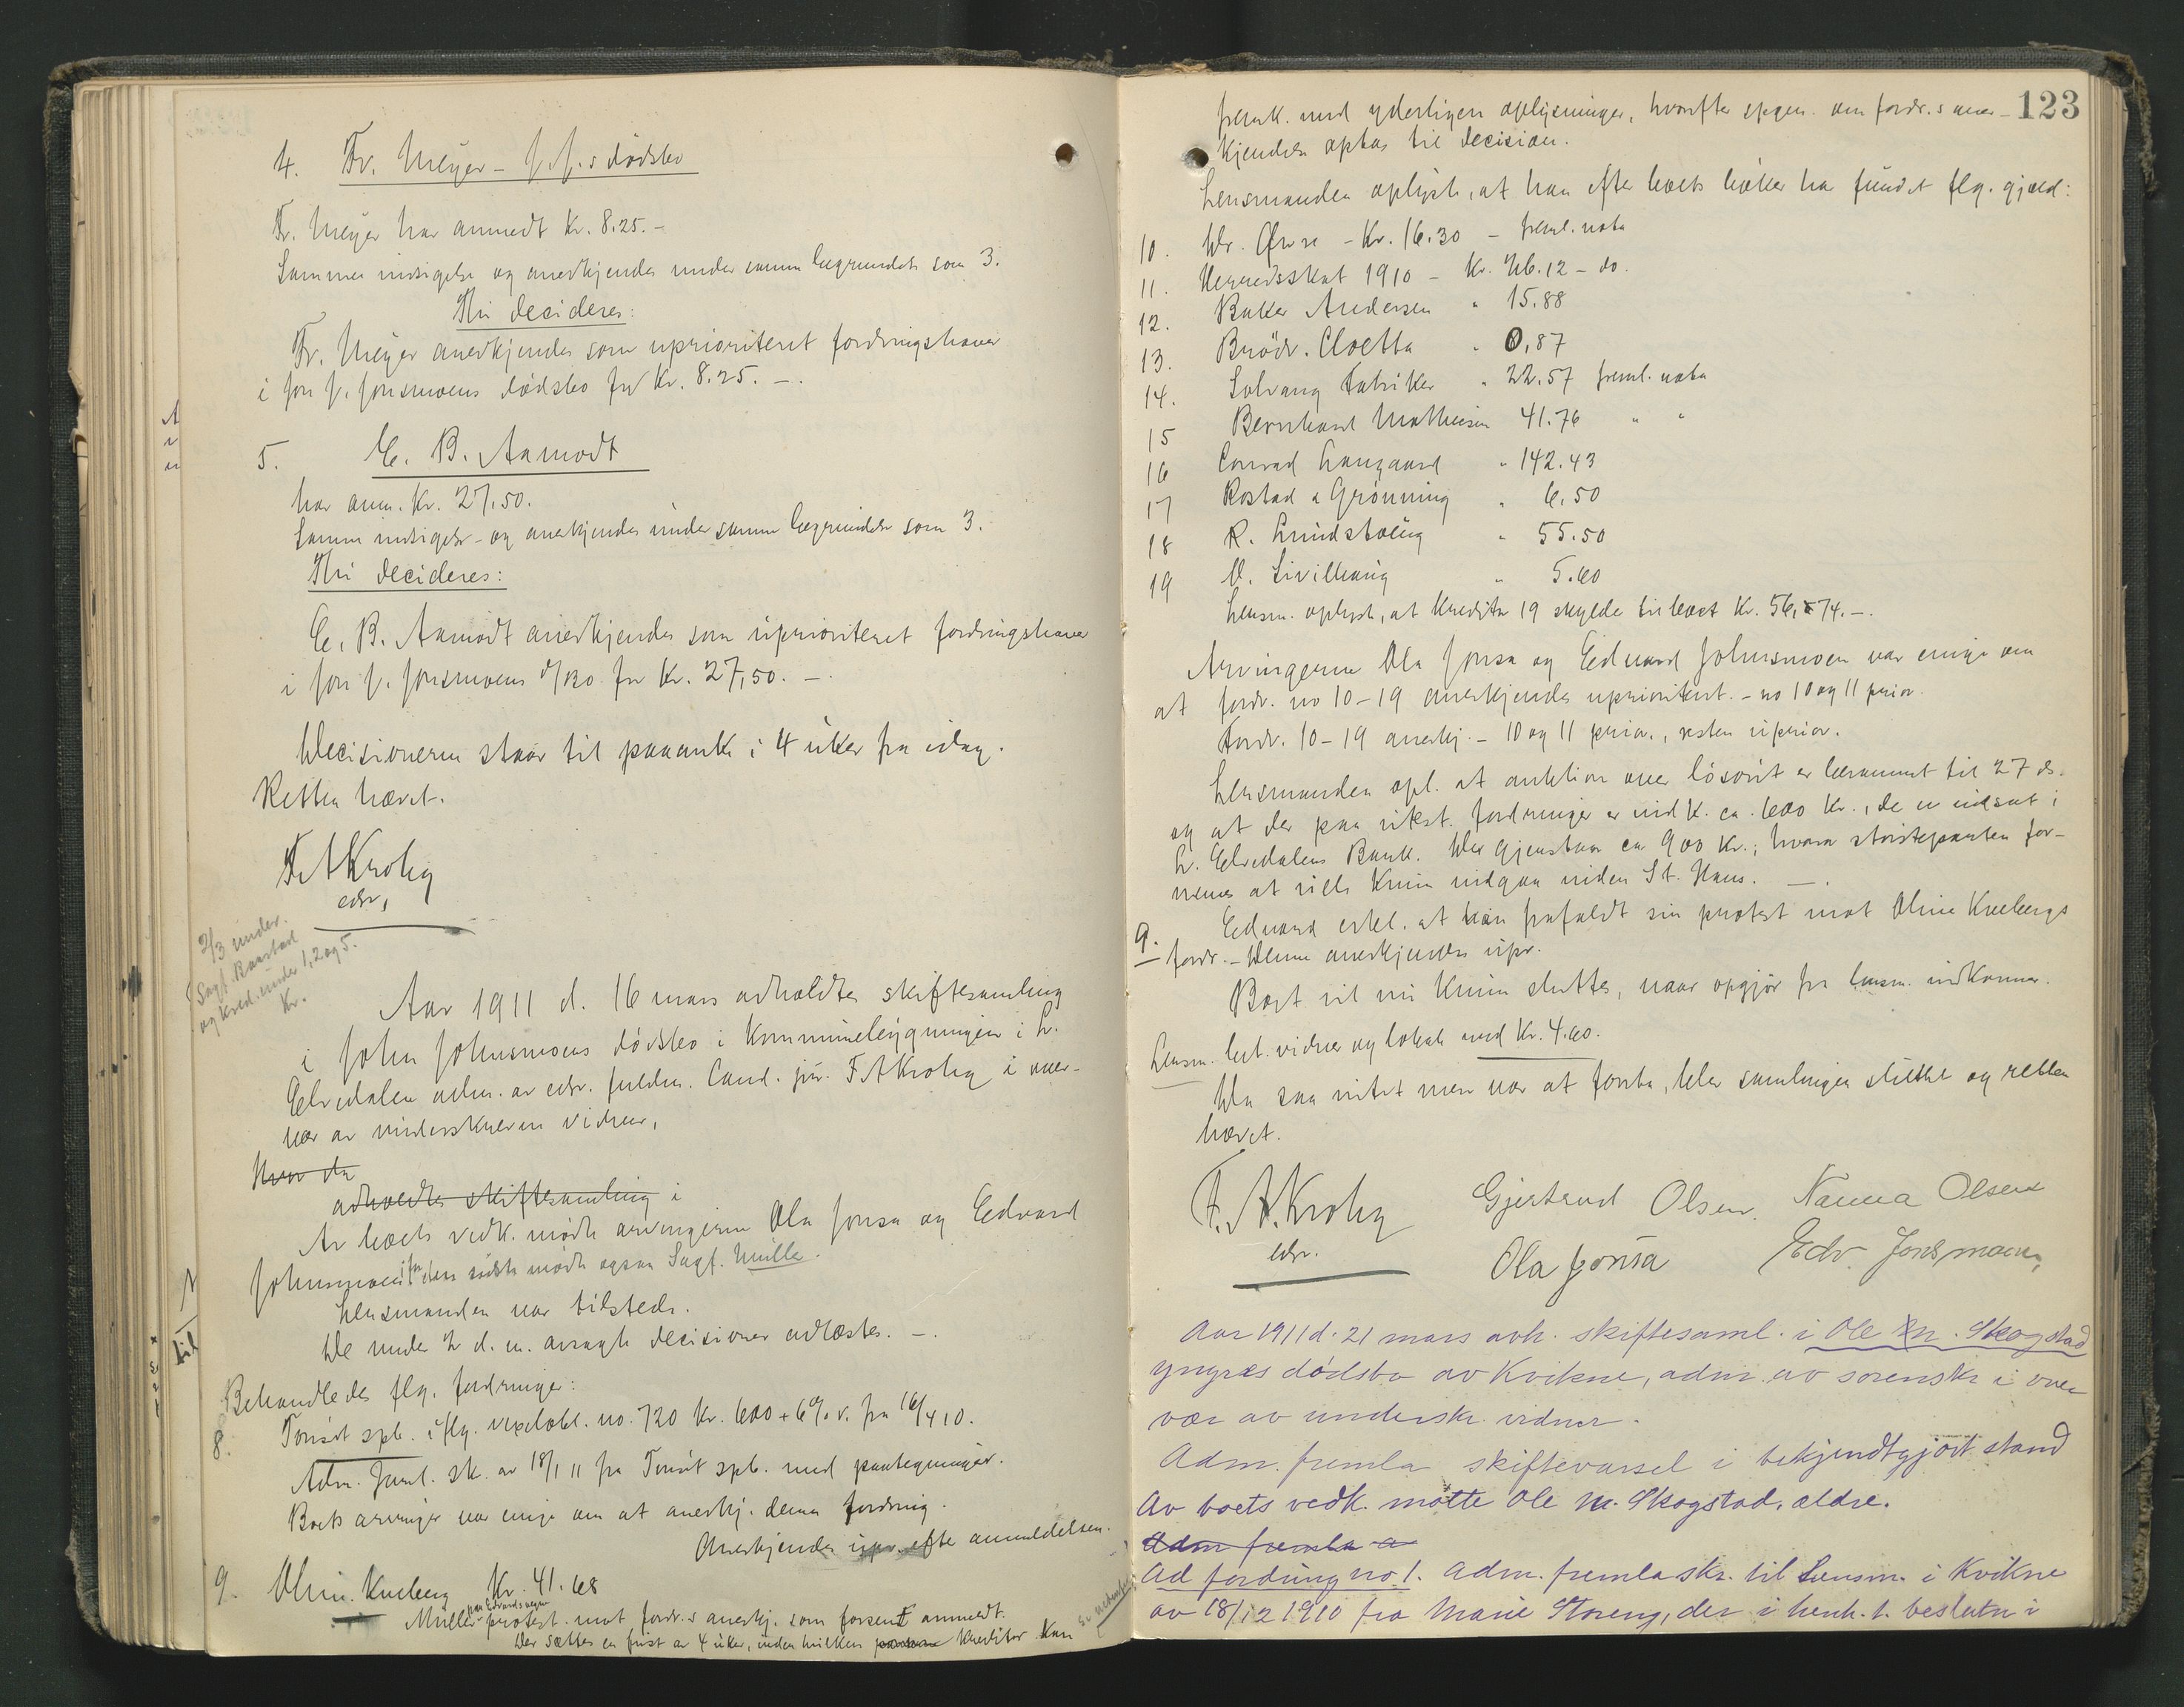 4. Fr. Meyer - J. J.s dødsbo
Fr. Meyer har anmedt Kr. 8.25.-
Samme indsigelse og anerkjendes under samme begrundelse som 3.
Thi decideres:
Fr. Meyer anerkjendes som uprioritert fordringshaver
i Jon J. Jonsmoens dødsbo for Kr. 8.25. -.
5. C. B. Aamodt
har anm. Kr. 27,50.
Samme indsigelse - og anerkjendes under samme begrundelse som 3.
Thi decideres:
C. B. Aamodt anerkjendes som uprioriteret fordringshaver
i Jon J. Jonsmoens d/bo for Kr. 27,50. -.
Decisionerne staar til paaanke i 4 uker fra idag.
Retten hævet.
F. A. Krohg
edsv.
2/3 under.
Sagf. Baastad
og kred. under 1, 2 og 5.
Kr.
Aar 1911 d. 16 mars avholdtes skiftesamling
i John Johnsmoens dødsbo i Kommunebygningen i L.
Elvedalen adm. av edsv. fuldm. Cand. jur. F. A. Krohg i over-
vær av underskrevne vidner,
Hvor da
avholdtes skiftesamling i
Av boets vedk. mødte arvingerne Ola Jonsa og Edvard
Johnsmoen, for den sidste mødte ogsaa Sagf. Müller.
Lensmanden var tilstede.
De under 2 d. m. avsagte decisioner oplæstes. -.
Behandledes flg. fordringer:
8. Tønset spb. iflg. vexelobl. no. 720 Kr. 600 + 6% r. fra 16/4 10.
Adm. freml. sk. av 18/1 11 fra Tønset spb. med paategninger.
Boets arvinger var enige om at anerkj. denne fordring.
Anerkjendes upr. efter anmeldelsen.
9. Oline Kveberg Kr. 41.68
paa Edvards vegne
Müller protest. mot fordr.s anerkj. som forsent anmedt.
Der sættes en frist av 4 uker, inden hvilken kreditor kan
123
fremk. med yderligere oplysninger, hvorefter spgm. om fordr.s aner-
kjendelse optas til decision.
Lensmanden oplyste, at han efter boets bøker har fundet flg. gjæld:
10. Dr. Øwre - Kr. 16.30 - freml. nota
11. Herredsskat 1910 - Kr. 26.12 - do.
12. Baker Andersen " 15.88
13. Brödr. Cloetta " 0,87
14. Solvang Fabriker " 22.57 freml. nota
15 Bernhard Mathiesen 41.76 " "
16 Conrad Langaard " 142.43
17 Rostad & Grønning " 6.50
18 R. Lundstøeng " 55.50
19 O. Livilhaug " 5.60
Lensm. oplyste, at kreditor 19 skylder til boet Kr. 56,74.-.
Arvingerne Ola Jonsa og Edvard Johnsmoen var enige om
at fordr. no 10-19 anerkjendes uprioritert. - no 10 og 11 prior.
Fordr. 10-19 anerkj. - 10 og 11 prior., resten uprior.
Lensmanden opl. at auktion over løsøret er berammet til 27 ds.
og at der paa utest. fordringer er indk. ca. 600 Kr., de er indsat i
L. Elvedalens Bank. Der gjenstaar ca 900 Kr., hvorav størsteparten for-
menes at ville kunne indgaa inden St. Hans. -.
9. Edvard erkl. at han frafaldt sin protest mot Oline Kvebergs
fordr. - Denne anerkjendes upr.
Boet vil nu kunne sluttes, naar opgjør fra lensm. indkommer.
Lensm. bet. vidner og lokale med Kr. 4.60.
Da saa intet mere var at foreta, blev samlingen sluttet og retten
hævet.
F. A. Krohg
edsv.
Gjertrud Olsen. Nanna Olsen
Ola Jonsa Edv. Jonsmoen,
Aar 1911 d. 21 mars avh. skiftesaml. i Ole M. Skogstad
yngres dødsbo av Kvikne, adm. av sorenskr. i over
vær av underskr. vidner.
Adm. fremla skiftevarsel i bekjendtgjort stand
Av boets vedk. møtte Ole M. Skogstad, ældre.
Adm fremla a
Ad fordring no 1. Adm. fremla skr. til Lensm. i Kvikne
av 18/12 1910 fra Marie Storeng, der i henh. t. beslutn i